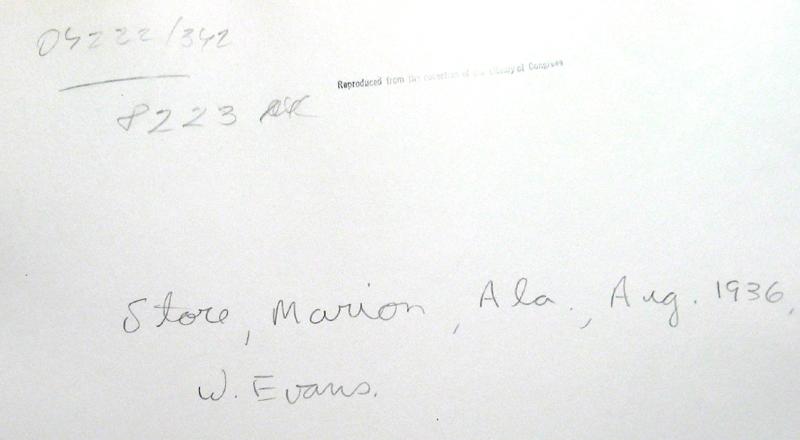 04222/342
Reproduced from the collection of the Library of Congress
8223
Store, Marion, Ala., Aug. 1936,
W. Evans.